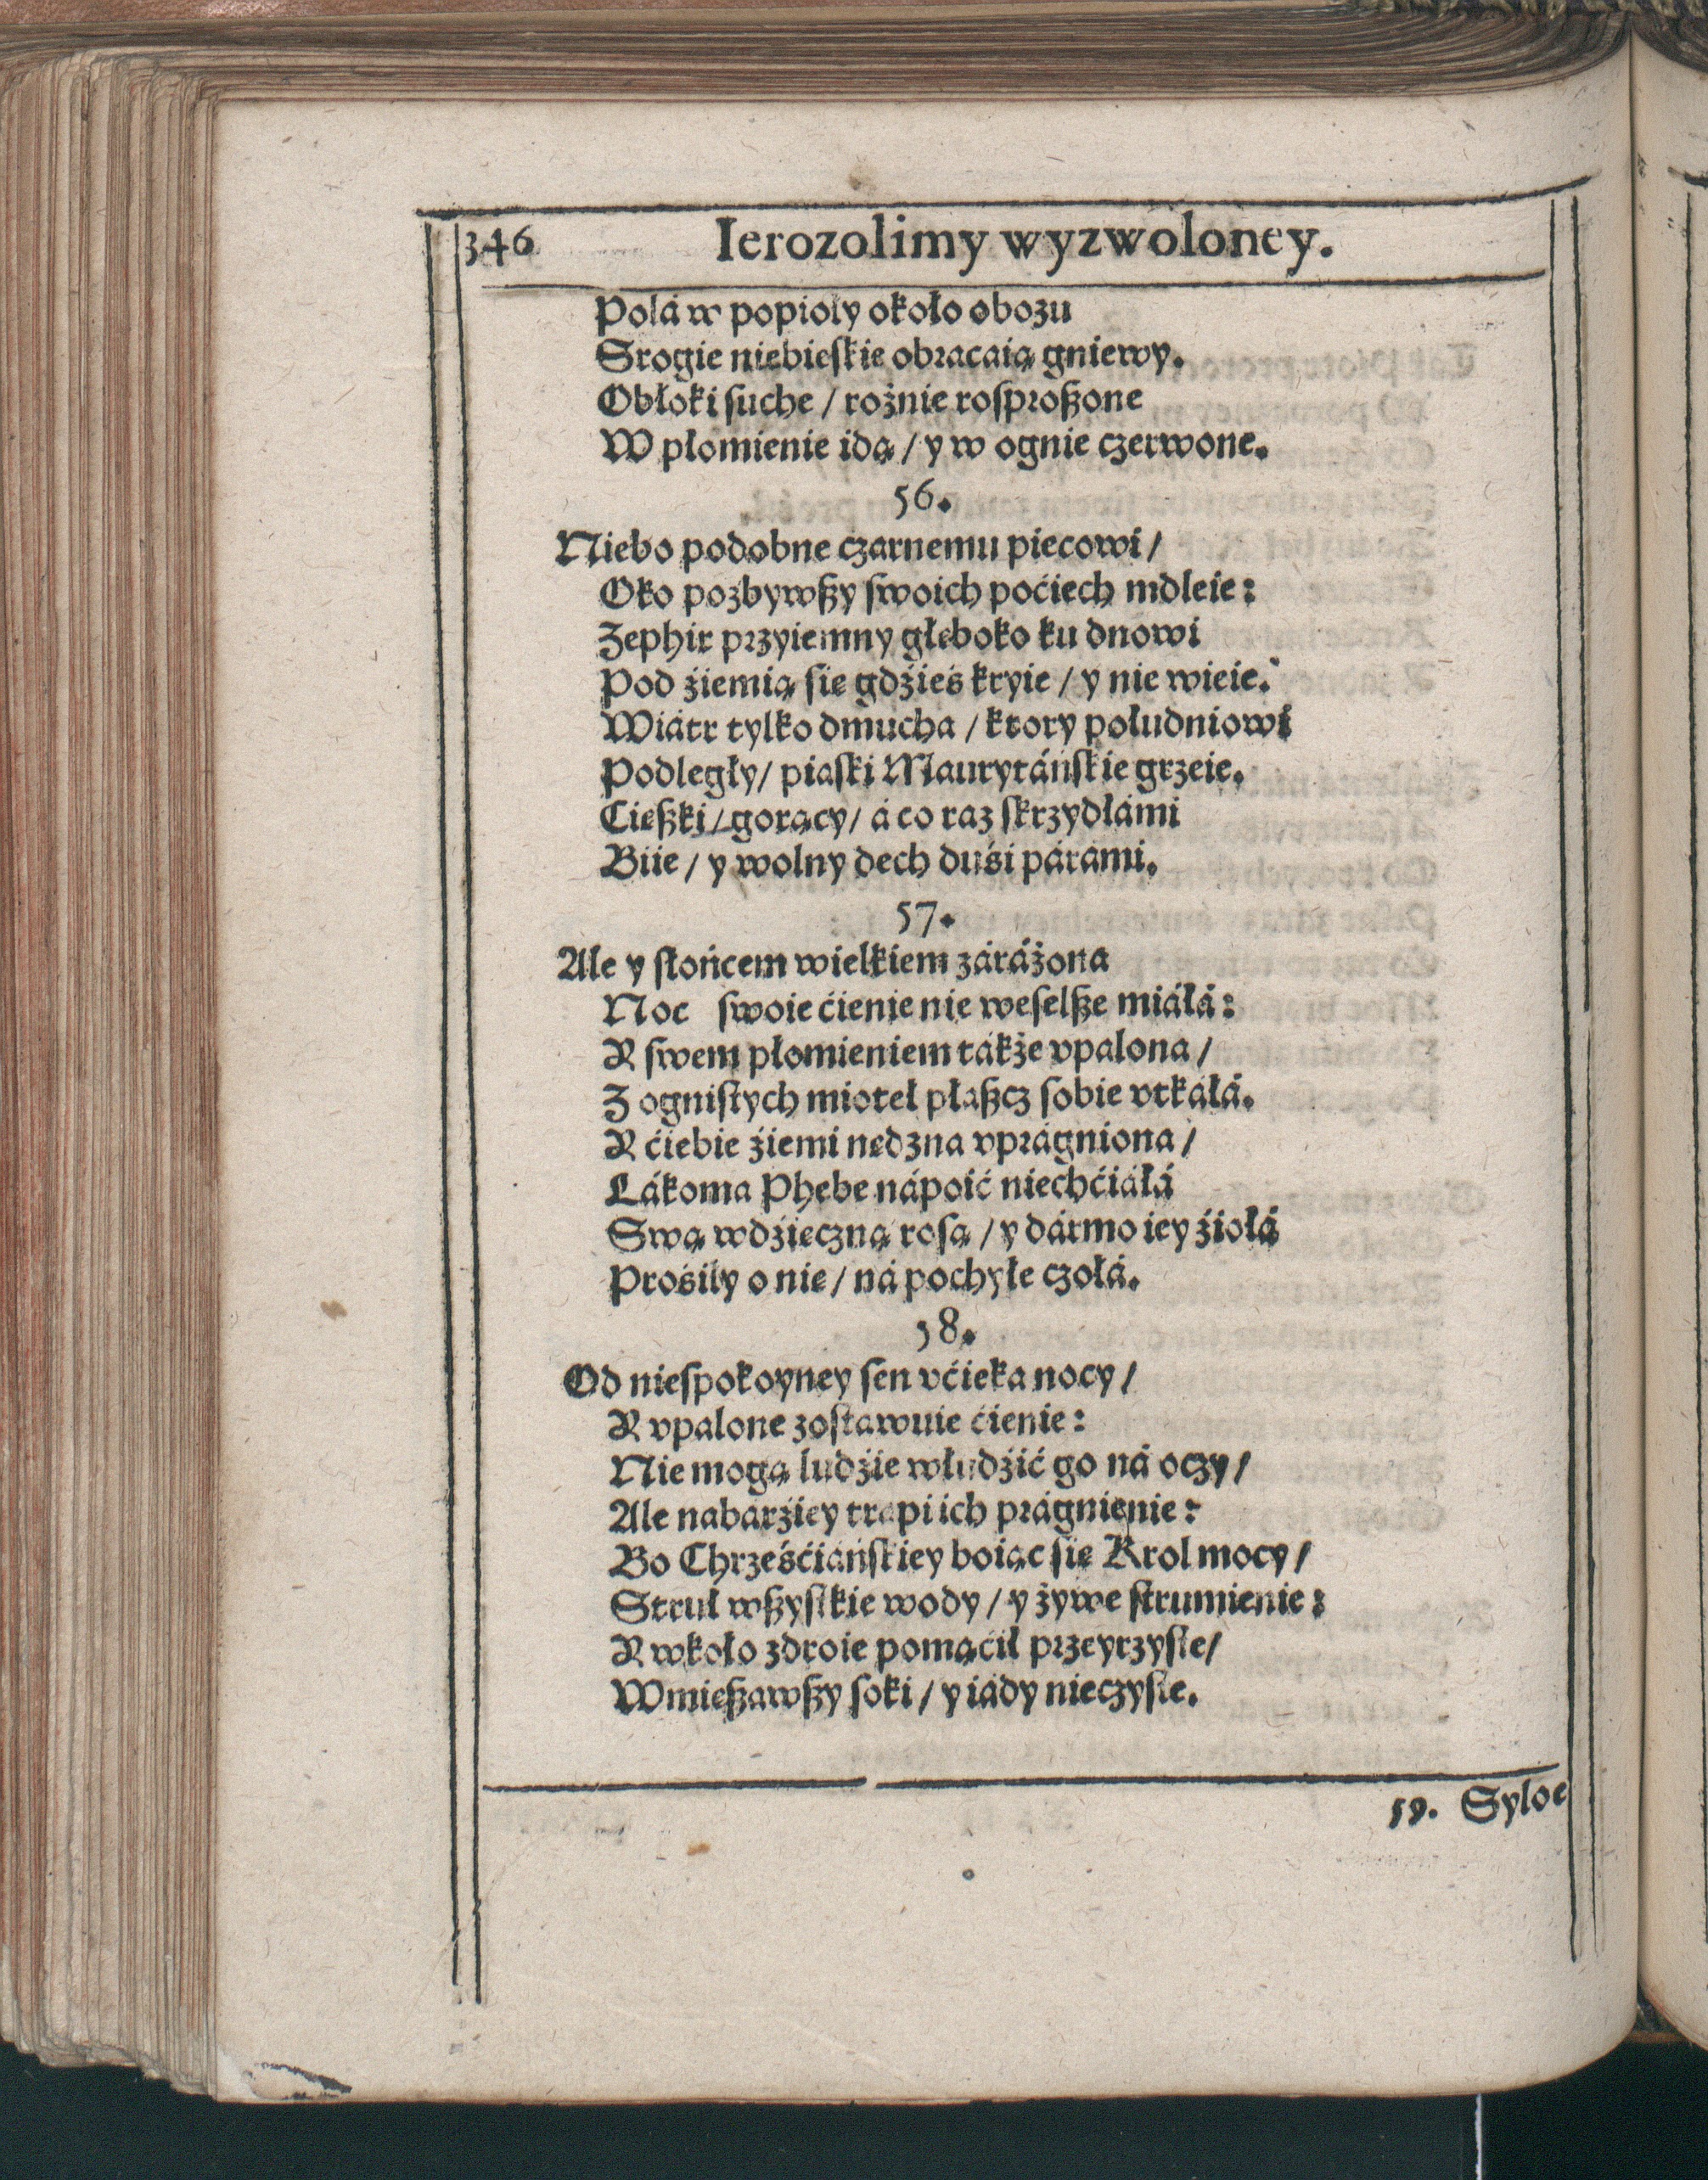 346 Ierozolimy wyzwoloney.
Polá w popioły około obozu
Srogie niebieskie obracaią gniewy.
Obłoki suche / rożnie rosproßone
W płomienie idą / y w ognie czerwone.
56.
Niebo podobne czarnemu piecowi /
Oko pozbywßy swoich poćiech mdleie:
Zephir przyiemny głęboko ku dnowi
Pod źiemią się gdźieś kryie / y nie wieie.
Wiátr tylko dmucha / ktory południowi
Podległy / piaski Maurytáńskie grzeie.
Cięßki / gorący / á co raz skrzydłámi
Biie / y wolny dech duśi párámi.
57.
Ale y słońcem wielkiem záráżona
Noc swoie ćienie nie weselße miáłá:
A swem płomieniem tákże vpalona /
Z ognistych mioteł płaßcz sobie vtkáłá.
A ćiebie źiemi nędzna vprágniona /
Lákoma Phebe nápoić niechćiáłá
Swą wdźięczną rosą / y dármo iey źiołá
Prośiły o nię / ná pochyłe czołá.
58.
Od niespokoyney sen vćieka nocy /
A vpalone zostawuie ćienie:
Nie mogą ludźie włudźić go ná oczy /
Ale nabárźiey trapi ich prágnienie:
Bo Chrześćiáńskiey boiąc się Krol mocy /
Struł wßystkie wody / y żywe strumienie:
A wkoło zdroie pomąćił przeyrzyste /
Wmießawßy soki / y iády nieczyste.
59. Syloe